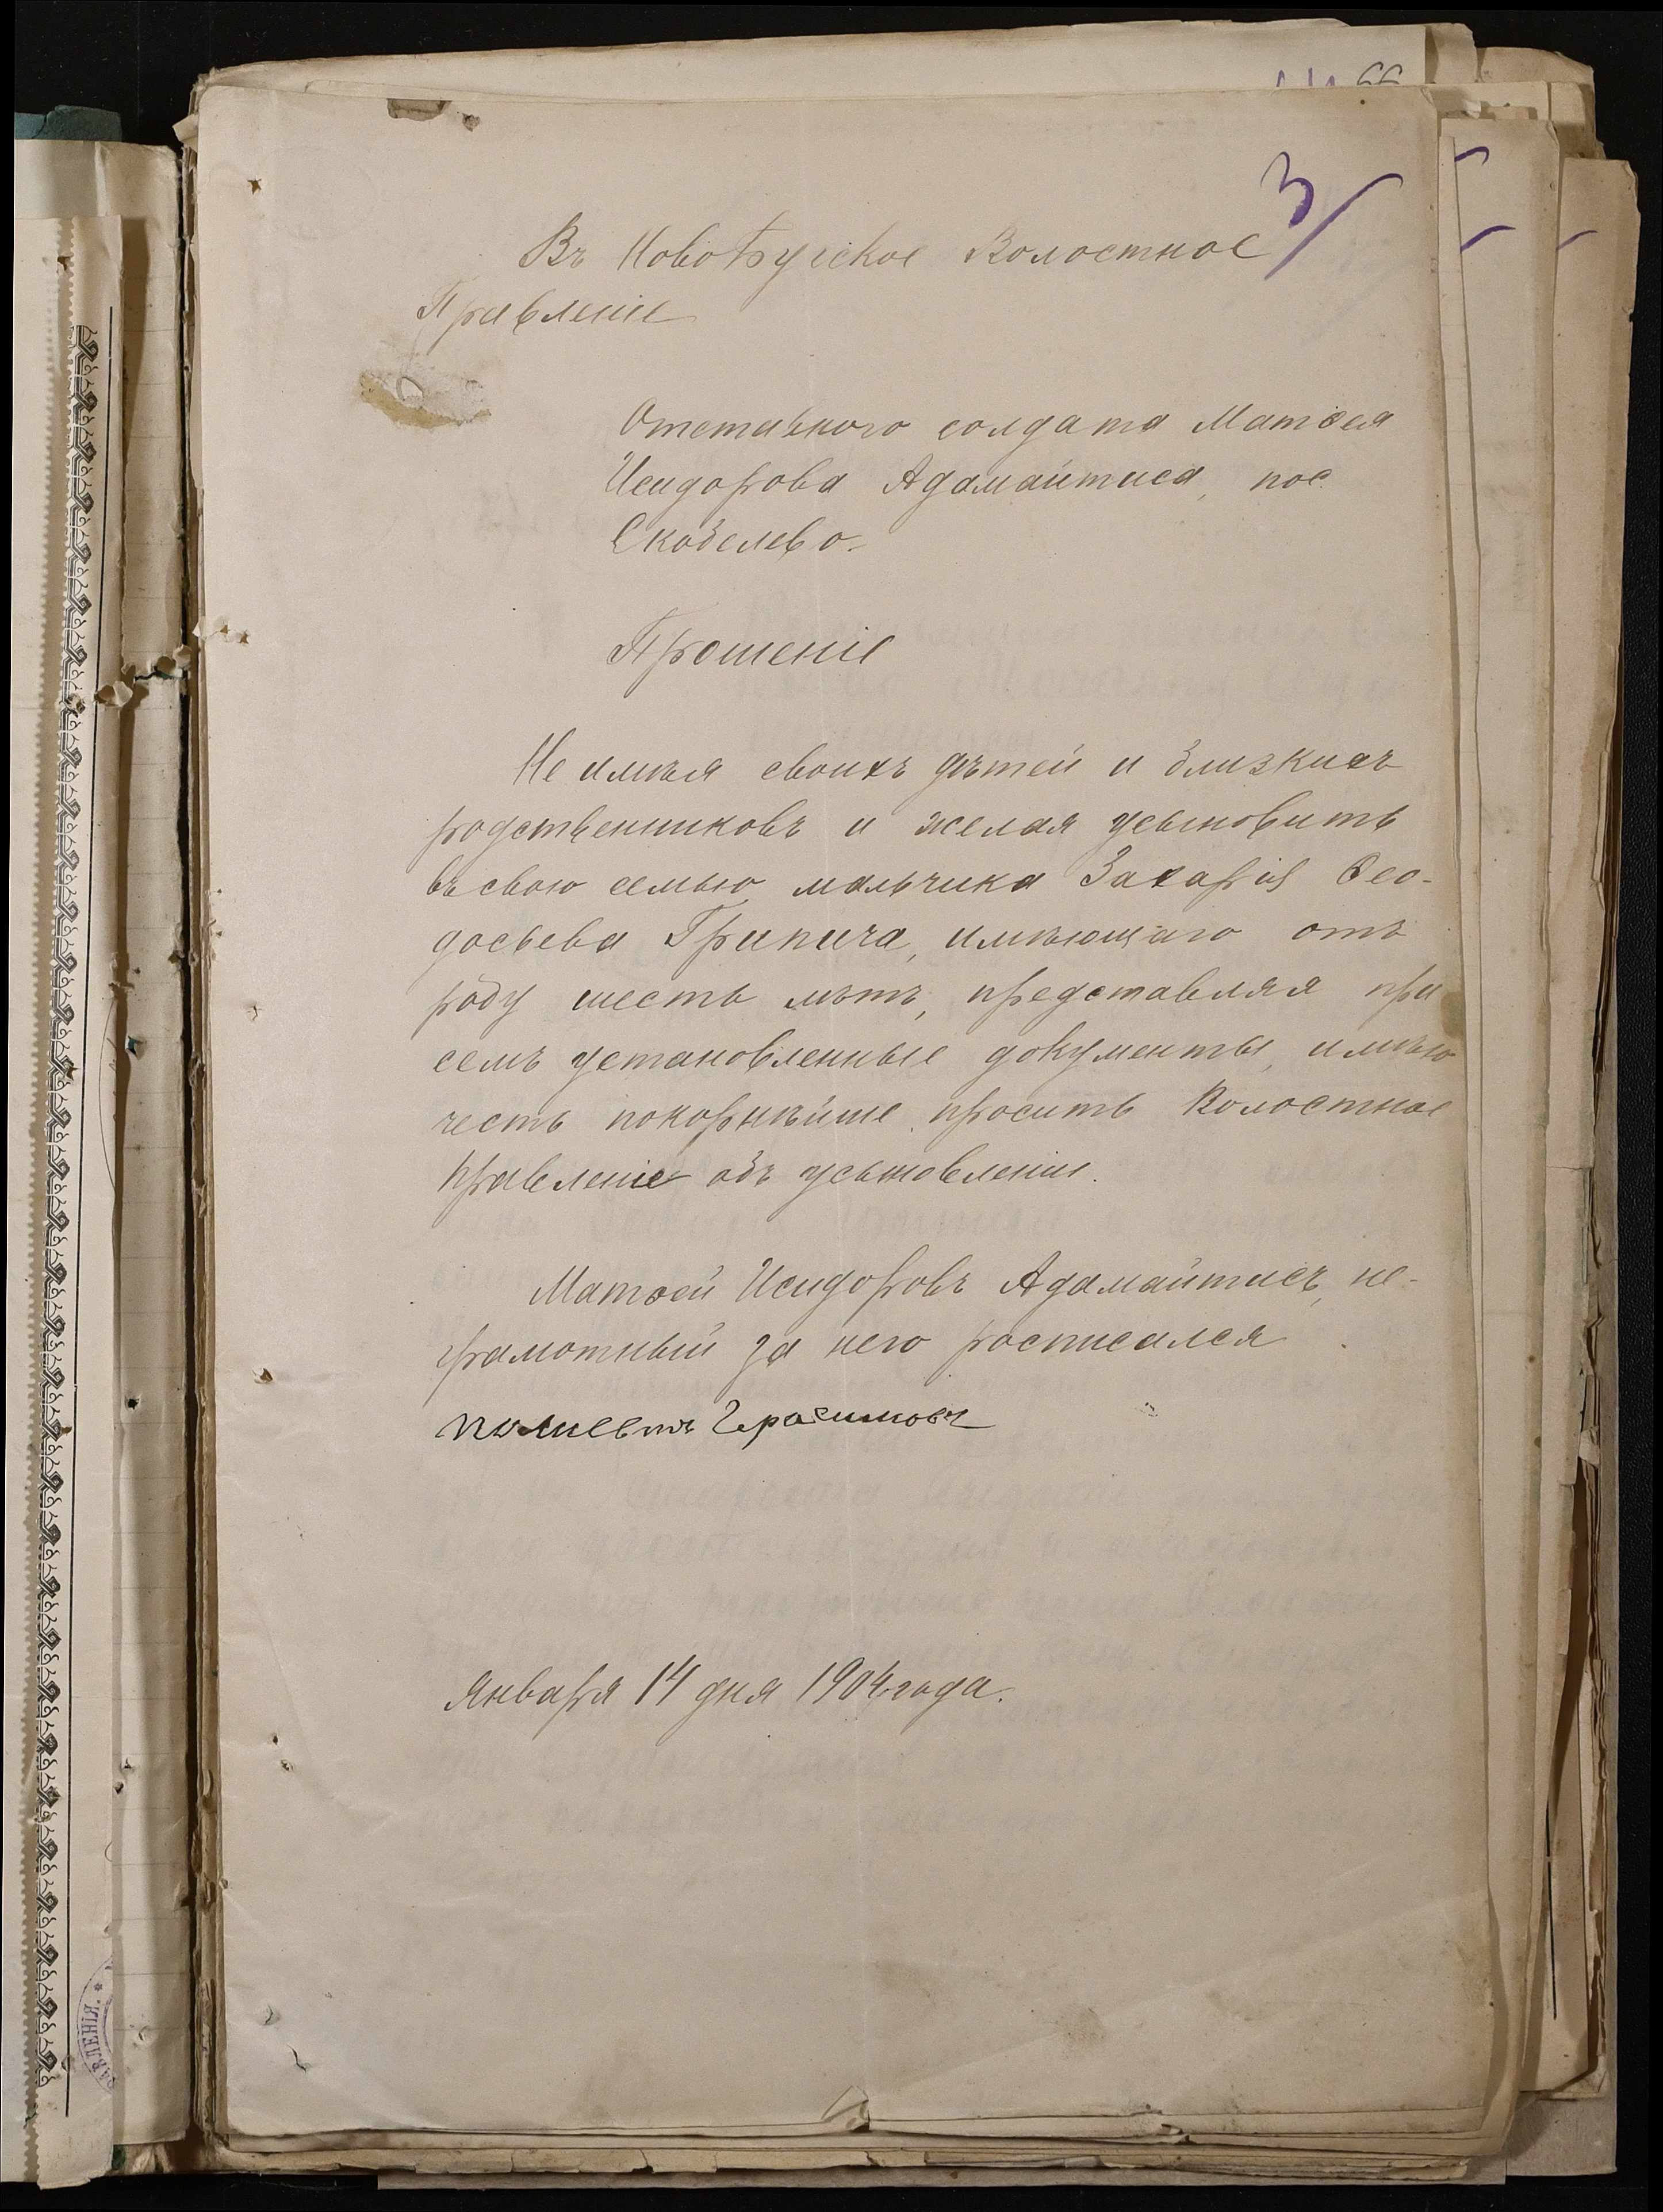 3
Въ Новобугское Волостное
Правленіе
Отставного солдата Матѳея
Исидорова Адамайтиса, пос.
Скобелево.
Прошеніе
Не имѣя своихъ дѣтей и близкихъ
родственниковъ и желая усыновить
въ свою семью мальчика Захарія Ѳео-
досьева Грипича, имѣющаго отъ
роду шесть лѣтъ, представляя при
семъ установленные документы, имѣю
честь покорнѣйше просить Волостное
Правленіе объ усыновленіи.
Матѳей Исидоровъ Адамайтисъ, не-
грамотный за него росписался
Герасимовъ
Января 14 дня 1904 года.